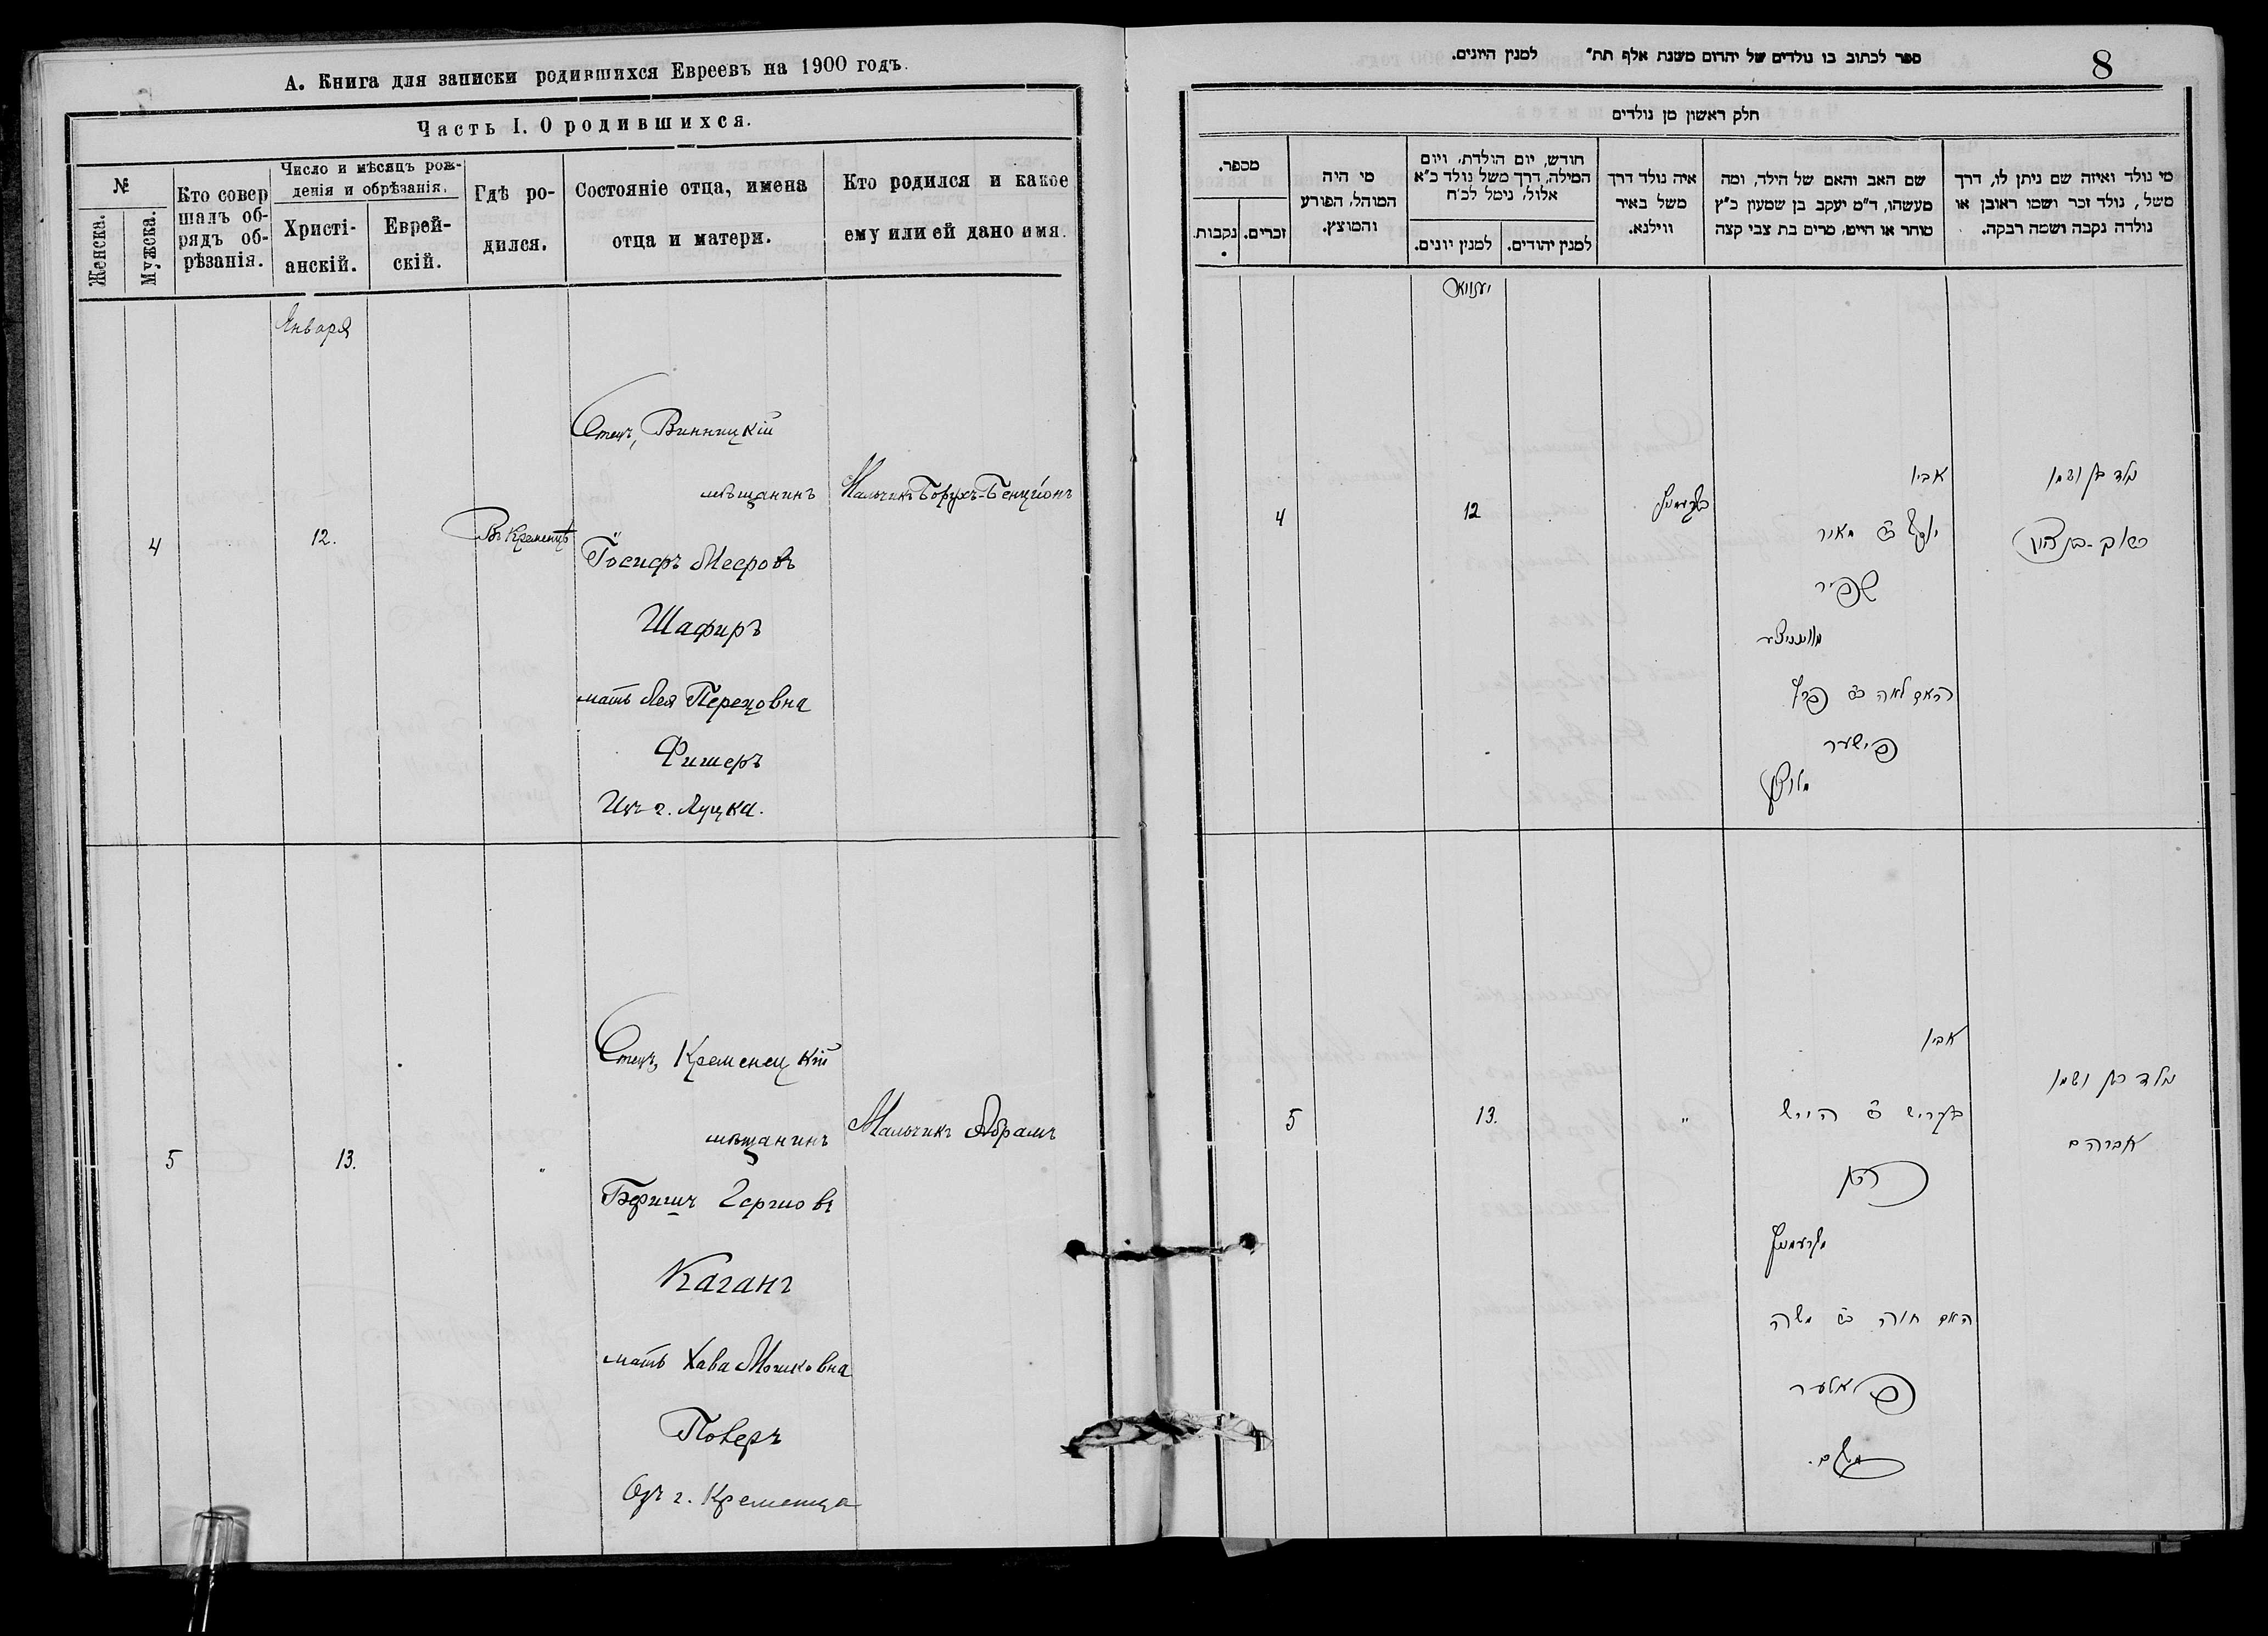 А. Книга для записки родившихся Евреевъ на 1900 годъ.
Часть I. О родившихся.
№
Женска.
Мужска.
Кто совер
шалъ об-
рядъ об-
рѣзанія.
Число и мѣсяцъ рож-
денія и обрѣзанія.
Христі-
анскій.
Еврей-
скій.
Гдѣ ро-
дился.
Состояніе отца, имена
отца и матери.
Кто родился и какое
ему или ей дано имя.
Января
4
12.
Въ Кременцѣ
Отецъ, Винницкій
мѣщанинъ
Іосифъ Мееровъ
Шафиръ
мать Лея Перецовна
Фишеръ
Изъ г. Луцка.
Мальчикъ Борухъ-Бенціонъ
5
13.
"
Отецъ, Кременецкій
мѣщанинъ
Беришъ Гершовъ
Каганъ
мать Хава Мошковна
Поверъ
Изъ г. Кременца
Мальчикъ Абрамъ
8
ספר לכתוב בו נולדים של יהדום משנת אלף תת״ למנין היונים.
חלק ראשון מן נולדים
מספר.
נקבות
זכרים.
מי היה
המוהל, הפורע
והמוצץ.
חודש, יום הולדת, ויום
המילה, דרך משל נולד כ״א
אלול, נימל לכ״ח
למנין יונים.
למנין יהודים.
איה נולד דרך
משל באיר
ווילנא.
שם האב והאם של הילד, ומה
מעשהו, ד״מ יעקב בן שמעון כ״ץ
סוחר או חייט, מרים בת צבי קצה
מי נולד ואיזה שם ניתן לו, דרך
משל, נולד זכר ושמו ראובן או
נולדה נקבה ושמה רבקה.
4
12
בקרעמניץ
אביו
יוסף ב״ר מאיר
שפיר
מוויניצע
האם לאה ב״ר פרץ
פישער
מלוצק
נולד בן ושמו
ברוך-בן ציון
5
13.
"
אביו
בעריש ב״ר הירש
כהן
מקרעמניץ
האם חוה ב״ר משה
נולד בן ושמו
אברהם